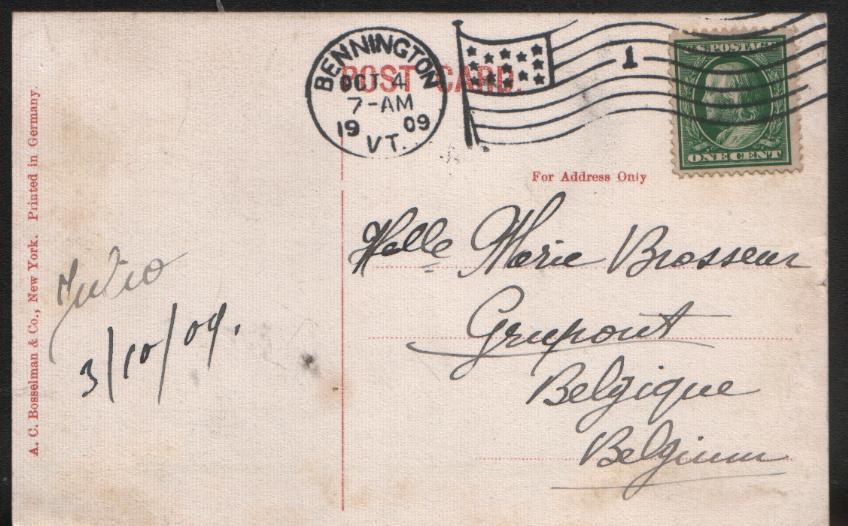 BENNINGTON
OCT 4
7-AM
1909
VT.
1
POST CARD.
U.S. POSTAGE
ONE CENT
For Address Only
Melle Marie Brasseur
Grupont
Belgique
Belgium
3/10/09.
A. C. Bosselman & Co., New York. Printed in Germany.